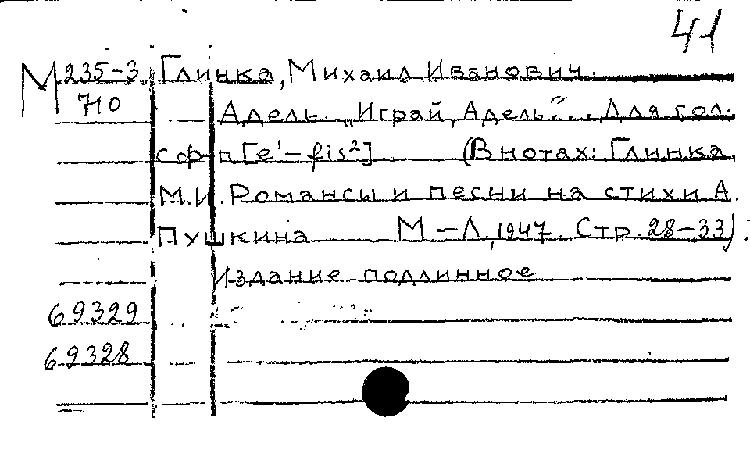 41
М 235-3 Глинка, Михаил Иванович.
710 Адель. „Играй, Адель“... Для гол.
с ф-п [e'–fis²] (В нотах: Глинка
М.И. Романсы и песни на стихи А.
Пушкина М-Л, 1947. Стр. 28-33).
Издание подлинное
69329
69328